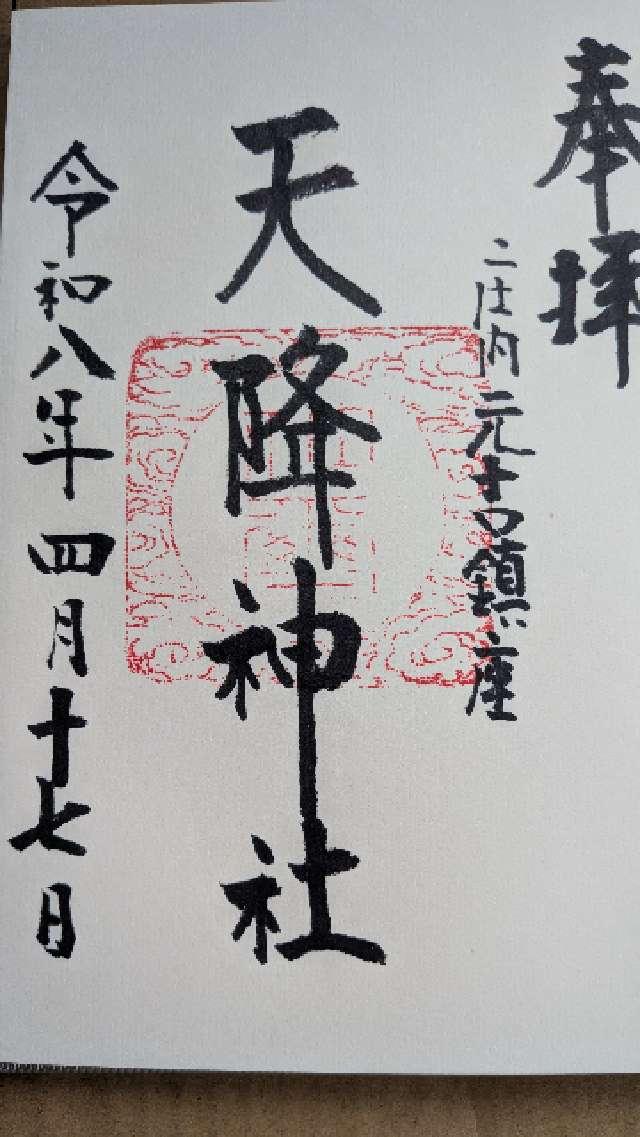 奉拝
庄内 元古口鎮座
天降神社
令和八年四月十七日